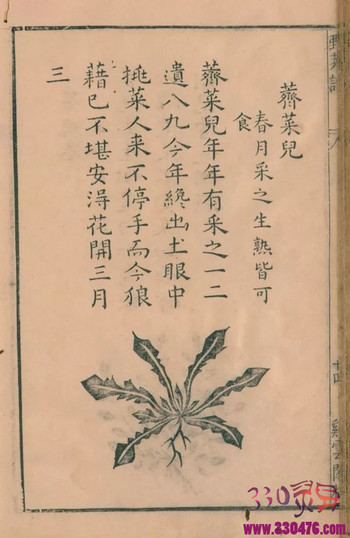 薺菜兒
春月采之生熟皆可
食
薺菜兒年年有采之一二
遺八九今年纔出土眼中
挑菜人来不停手而今狼
藉已不堪安得花開三月
三
野菜譜
十四
330
www.230476.com